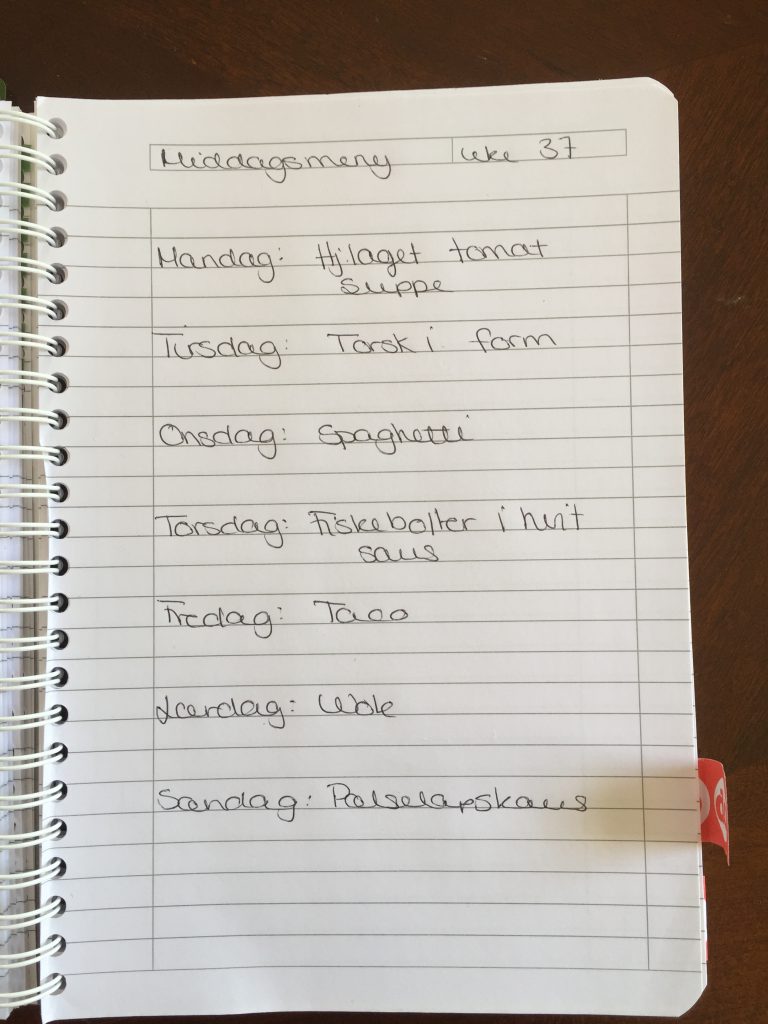 Middagsmeny uke 37
Mandag: Hj.laget tomat
suppe
Tirsdag: Torsk i form
Onsdag: Spaghetti
Torsdag: Fiskeboller i hvit
saus
Fredag: Taco
Lørdag: Wok
Søndag: Pølselapskaus